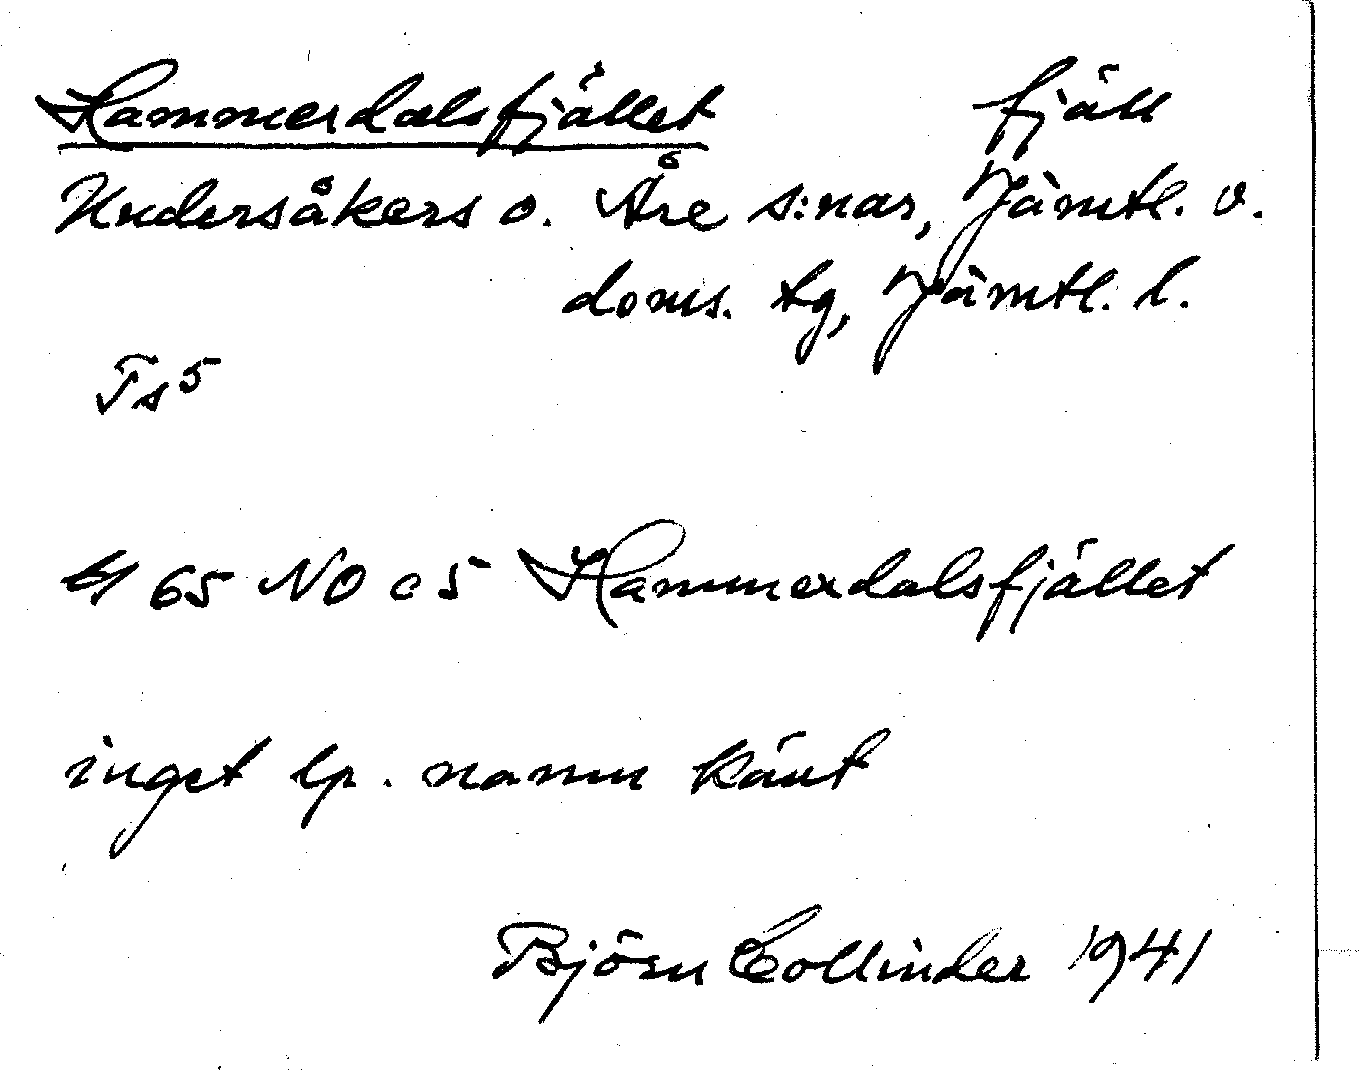 Hammerdalsfjället fjäll
Undersåkers o. Åre s:nar, Jämtl. v.
doms. tg, Jämtl. l.
Ts5
4 65 NO c 5 Hammerdalsfjället
inget lp. namn känt
Björn Collinder 1941